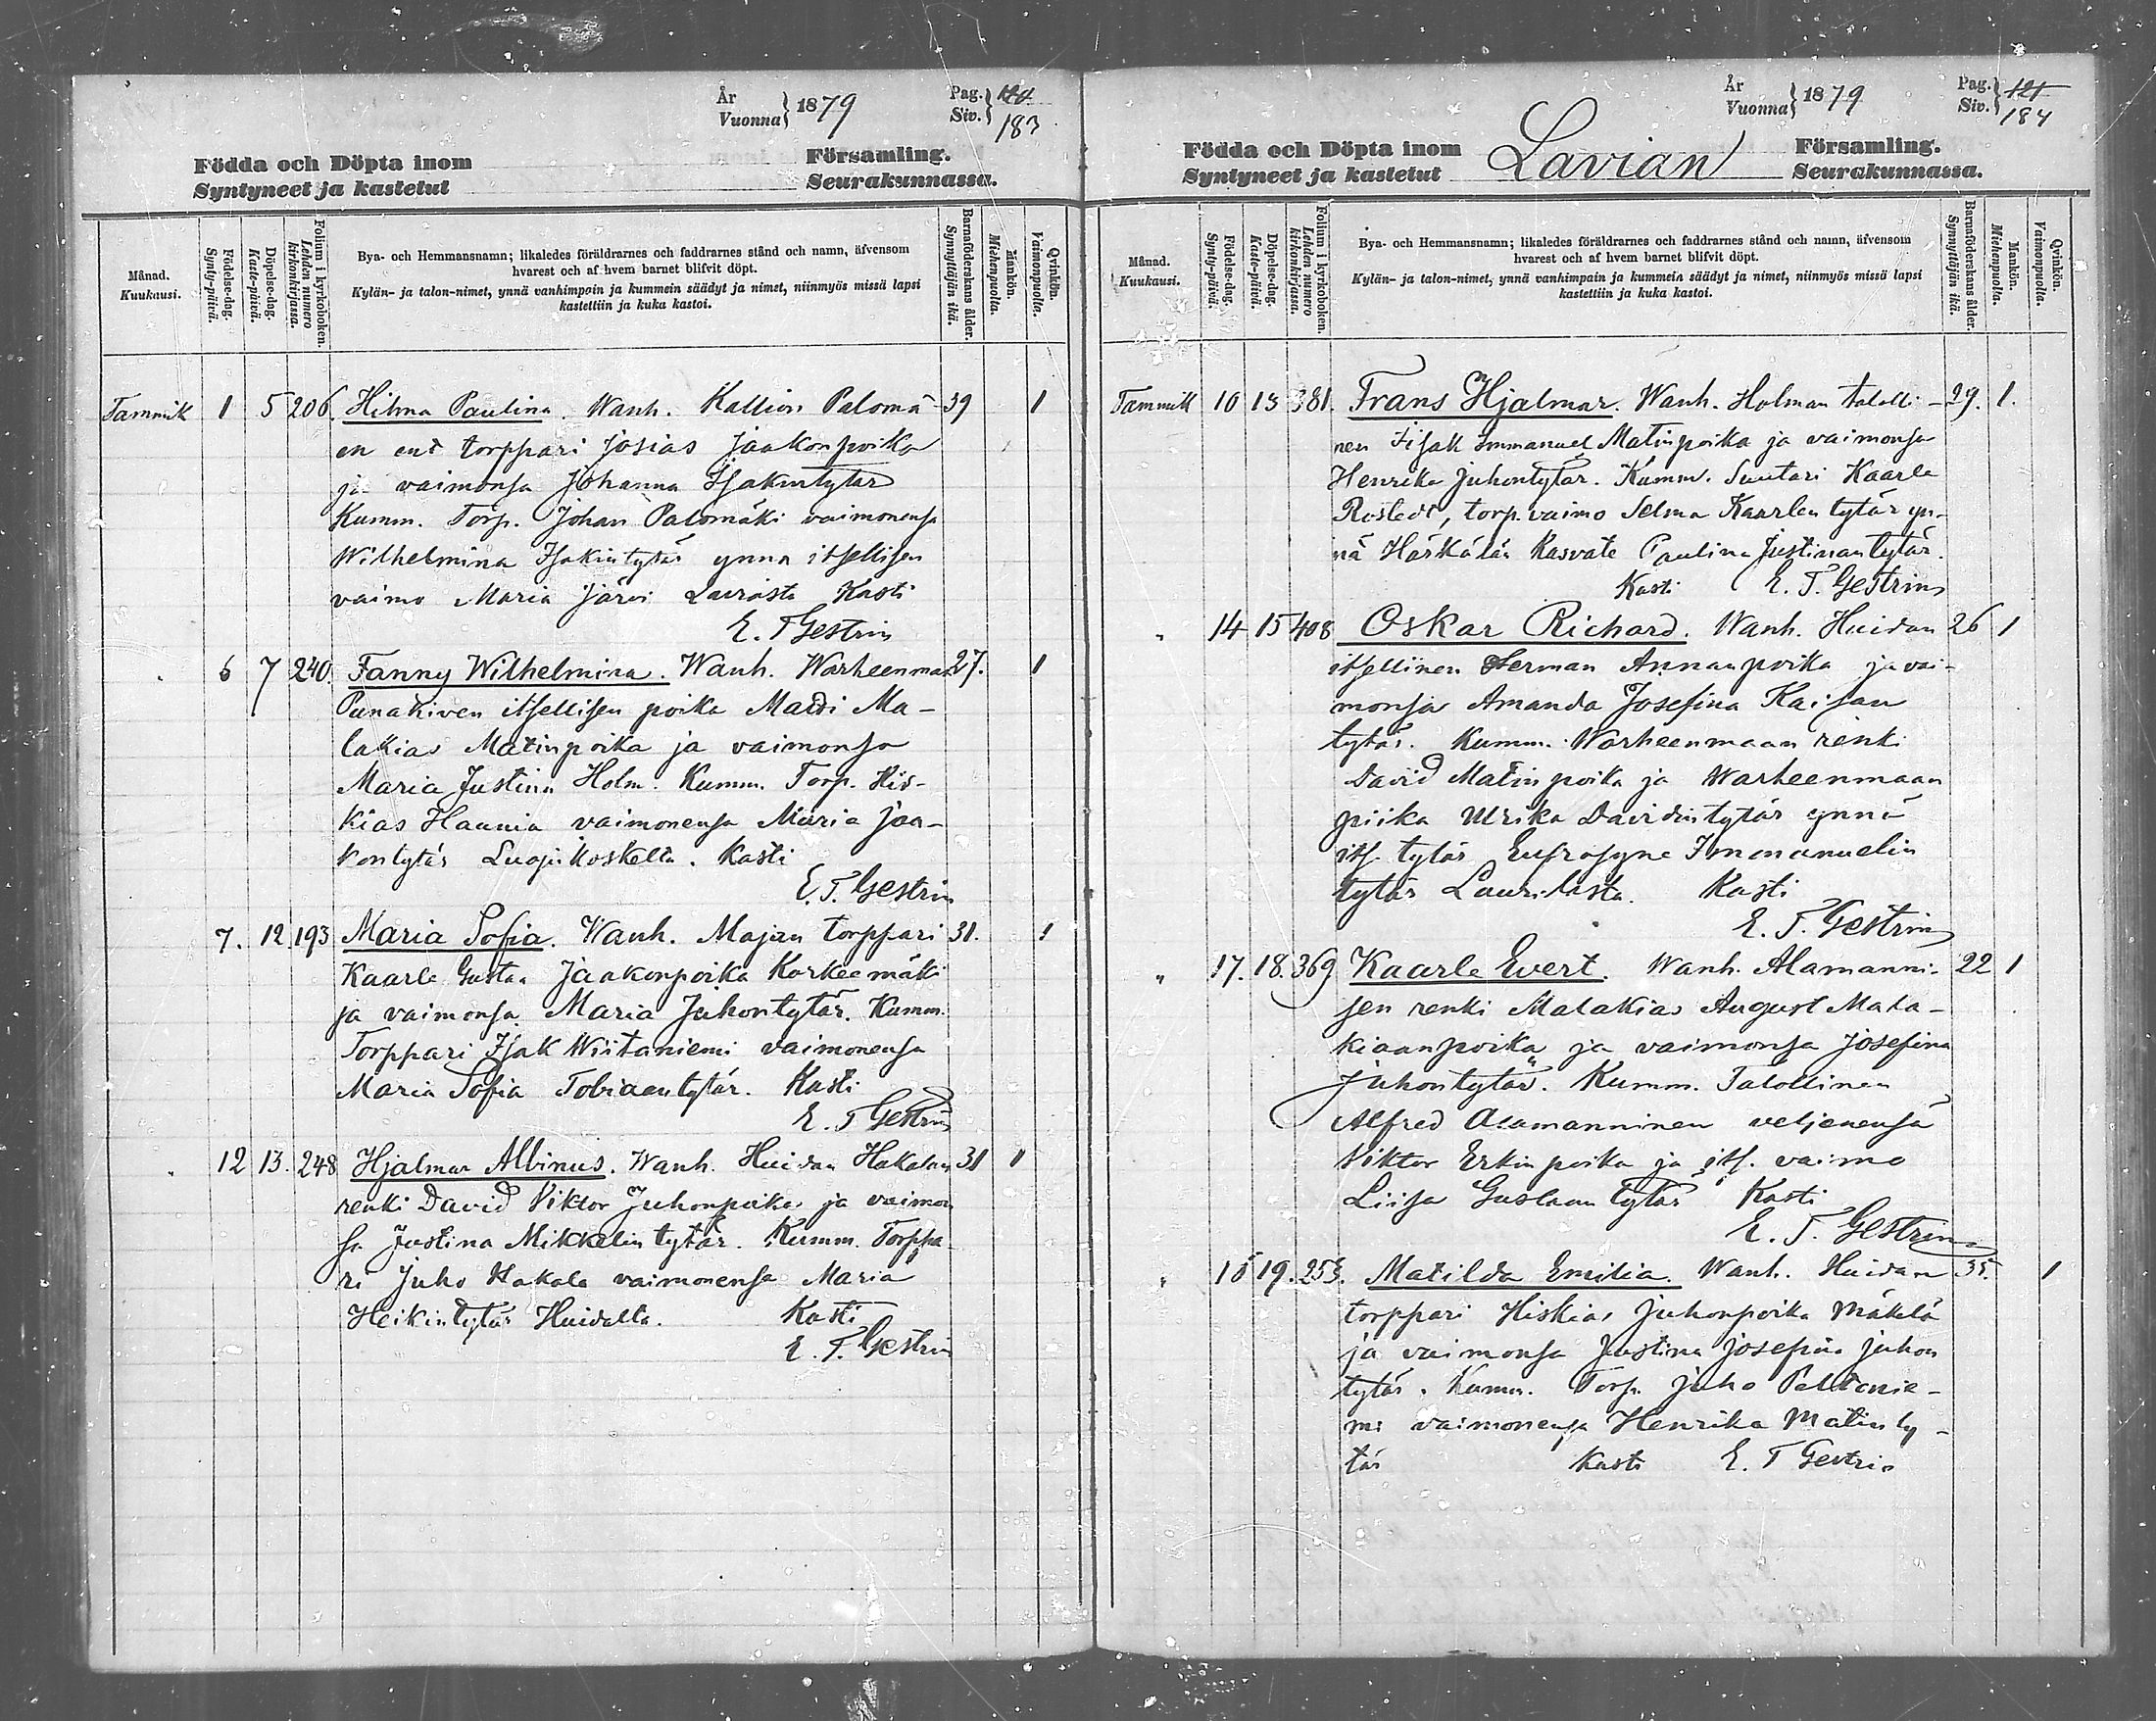 År
Vuonna } 1879
Pag.
Siv. } 183
Födda och Döpta inom Församling.
Syntyneet ja kastetut Seurakunnassa.
Månad.
Kuukausi.
Födelse-dag.
Synty-päivä.
Döpelse-dag.
Kaste-päivä.
Folium i kyrkoboken.
Lehden numero kirkonkirjassa.
Bya- och Hemmansnamn; likaledes föräldrarnes och faddrarnes stånd och namn, äfvensom
hvarest och af hvem barnet blifvit döpt.
Kylän- ja talon-nimet, ynnä vanhimpain ja kummein säädyt ja nimet, niinmyös missä lapsi
kastettiin ja kuka kastoi.
Barnaföderskans ålder.
Synnyttäjän ikä.
Mankön.
Miehenpuolta.
Qvinkön.
Vaimonpuolta.
Tammik 1 5 206. Hilma Paulina. Wanh. Kallion Palomä- 39 1
en ent torppari Josias Jaakonpoika
ja vaimonsa Johanna Isakintytär
Kumm. Torp. Johan Palomäki vaimonensa
Wilhelmina Isakintytär ynnä itsellisen
vaimo Maria Järvi Kasti
E. T Gestrin
6 7 240. Fanny Wilhelmina. Wanh. Warheenmaan 27. 1
Punakiven itsellisen poika Mardi Ma-
lakias Matinpoika ja vaimonsa
Maria Justina Holm. Kumm. Torp. His-
kias Haunia vaimonensa Maria Jaa-
kontytär Luopikoskelta. Kasti
E. T. Gestrin
7. 12 193 Maria Sofia. Wanh. Majan torppari 31. 1
Kaarle Gustaa Jaakonpoika Korkeemäki
ja vaimonsa Maria Juhontytär. Kumm.
Torppari Isak Wiitaniemi vaimonensa
Maria Sofia Tobiaantytär. Kasti
E. T Gestrin
12 13. 248 Hjalmar Albinus. Wanh. Huidan Hakalan 31 1
renki David Viktor Juhonpoika ja vaimon
sa Justina Mikkelin tytär. Kumm. Torppa
ri Juho Hakala vaimonensa Maria
Heikintytär Huidalta. Kasti
E. T. Gestrin
År
Vuonna } 1879
Pag.
Siv. } 121
184
Födda och Döpta inom Lavian Församling.
Syntyneet ja kastetut Seurakunnassa.
Månad.
Kuukausi.
Födelse-dag.
Synty-päivä.
Döpelse-dag.
Kaste-päivä.
Folium i kyrkoboken.
Lehden numero kirkonkirjassa.
Bya- och Hemmansnamn; likaledes föräldrarnes och faddrarnes stånd och namn, äfvensom
hvarest och af hvem barnet blifvit döpt.
Kylän- ja talon-nimet, ynnä vanhimpain ja kummein säädyt ja nimet, niinmyös missä lapsi
kastettiin ja kuka kastoi.
Barnaföderskans ålder.
Synnyttäjän ikä.
Mankön.
Miehenpuolta.
Qvinkön.
Vaimonpuolta.
Tammik 10 13 381. Frans Hjalmar. Wanh. Holman talolli- 29. 1.
nen Iisak Immanuel Matinpoika ja vaimonsa
Henrika Juhontytär. Kumm. Suutari Kaarle
Rosledt, torp. vaimo Selma Kaarlen tytär yn-
nä Härkälän kasvate Paulina Justinantytär.
Kasti E. T. Gestrin
" 14 15 408 Oskar Richard. Wanh. Huidan 26 1
itsellinen Herman Annanpoika ja vai-
monsa Amanda Josefina Kaisan
tytär. Kumm. Warheenmaan renki
David Matinpoika ja Warheenmaan
piika Ulrika Davidintytär ynnä
its. tytär Eufrosyne Immanuelin
tytär Laurilasta. Kasti
E. T. Gestrin
" 17. 18. 369 Kaarle Evert. Wanh. Alamanni- 22 1
sen renki Malakias August Mala-
kiaanpoika ja vaimonsa Josefina
Juhontytär. Kumm. Talollinen
Alfred Alamanninen veljenensä
Viktor Erkinpoika ja its. vaimo
Liisa Gustaan tytär Kasti
E. T. Gestrin
" 15 19. 253. Matilda Emilia. Wanh. Huidan 35. 1
torppari Hiskias Juhonpoika Mäkelä
ja vaimonsa Justina Josefina Juhon
tytär. Kumm. Torp. Juho Peltonie-
mi vaimonensa Henrika Matinty-
tär Kasti E. T Gestrin